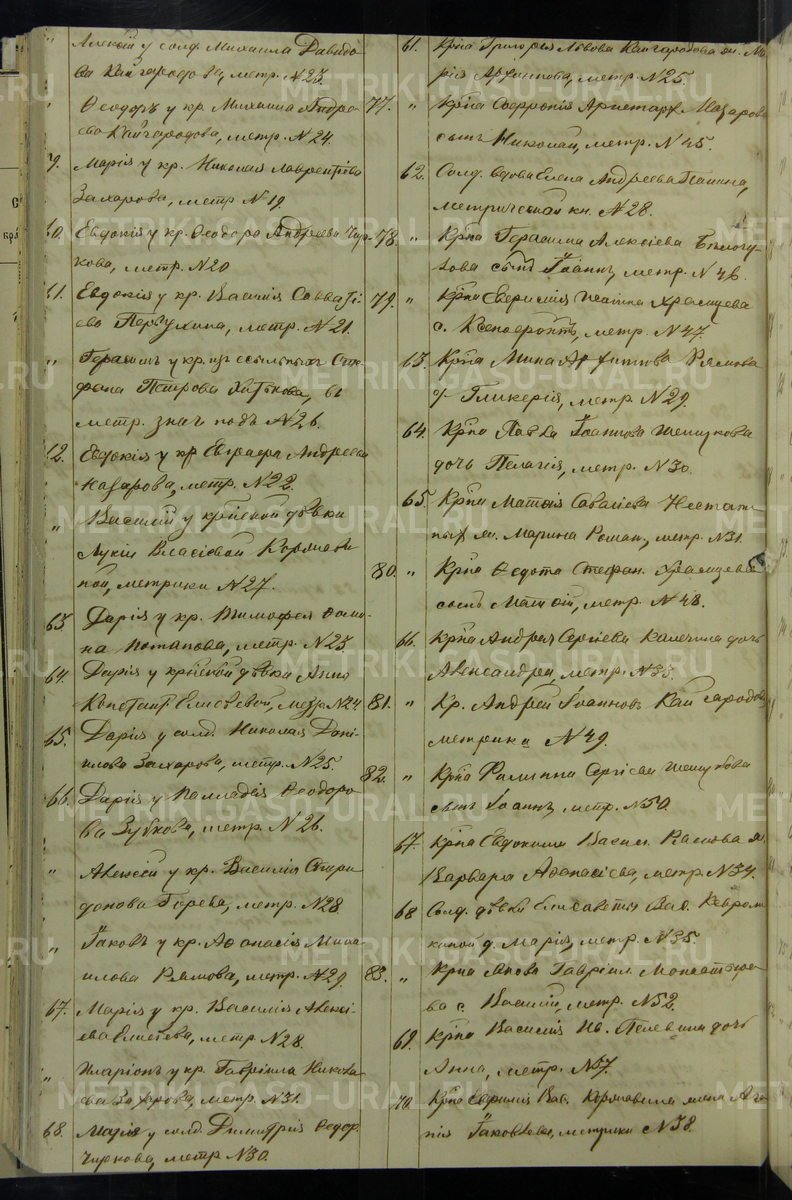 " Алексѣй у солд. Михаила Давидо-
ва Кайгародова, метр. №23.
" Ѳеодоръ у кр. Михаила Андре-
ева Кайгородова, метр. №24.
9. Марія у кр. Николая Лаврентіева
Захарова, метр №19.
60. Евдокія у кр. Ѳеодора Андреева Чир-
кова, метр. №20
61. Евдокія у кр. Василія Савваті-
ева Первухина, метр. №21.
" Герасимъ у кр. изъ ссыльныхъ Сте-
фана Петрова въ
метр. знач подъ №26.
62. Евдокія у кр Евграфа Андреева
Назарова, метр. №22.
" Василій у крпской дѣвки
Лукіи Власіевой
ной, метрики №27.
63. Дарія у кр. Тимофея Ѳоми-
на Потапова, метр. №23
64. Дарія у крпской дѣвки Анны
Констант. Елисѣевой, метр №24.
65. Дарія у солд. Николая Дані-
илова Захарова, метр. №25.
66. Дарія у Палладія Ѳеодоро-
ва Зубкова, метр. №26.
" Алексѣй у кр. Василія Спири-
донова Горева, метр. №28
" Іаковъ у кр. Аѳанасія Миха-
илова Рямова, метр. №29.
67. Марія у кр. Василія Алексѣ-
ева Елисѣева, метр №28.
" Иларіонъ у кр. Гавріила Никола-
ева Захарова, метр. №31.
68. Марія у солд. Димитрія Ѳедор.
Чиркова, метр №30.
61. Крна Григорія Львова Кайгородова жн. Ма-
рія Архипова, метр. №25.
77. " Крна Софронія Аристарх. Назарова
сынъ Николай, метр. №45.
62. Солд. вдова Елена Андреева Панина,
метрической кн. №28.
78. " Крна Герасима Алексіева Бѣлогу-
зова сынъ Іоаннъ, метр. №46.
79. " Крна Храмцева
с. Ксенофонтъ, метр. №47
63. Крна Мина Рямова
Гликерія, метр. №29.
64. Крна Павла Іоаннова Шешукова
дочь Пелагія, метр. №30.
65. Крна Матѳія Савваіева
жн. Марина Роман., метр. №31.
80. " Крна Ѳедота Стефан. Храмцева
сынъ Матѳій, метр. №48.
66. Крна Андрея Сергіева Калетина дочь
Александра, метр. №33.
81. " Кр. Андрей Іоанновъ Кайгародовъ
метрики №49.
82. " Крна Филиппа Сергіева Шешукова
сынъ Іоаннъ, метр. №50.
67. Крна Евдокима Васил. Рямова ж.
Варвара Аѳанасіева, метр №34.
68 Солд. дѣвки Елисаветы Вас.
д. Марія, метр. №35.
83. " Крна Якова Гавріил. Монастыре-
ва с. Василій, метр. №52.
69. Крна Василія Ив. Пелевина дочь
Анна, метр. №37.
70. Крна Ефимія Вас. жена Ага-
пія Іаковлева, метрики №38
METRIKI.GASO-URAL.RU